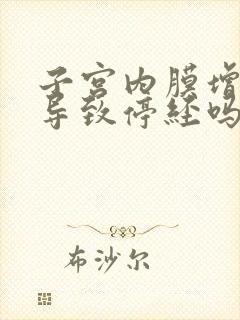 子宫内膜增
导致停经吗
布沙尔